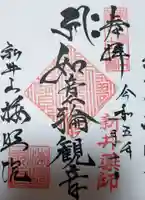 奉拝
令和五年
月
新井薬師
如意輪観音
新井山梅照院